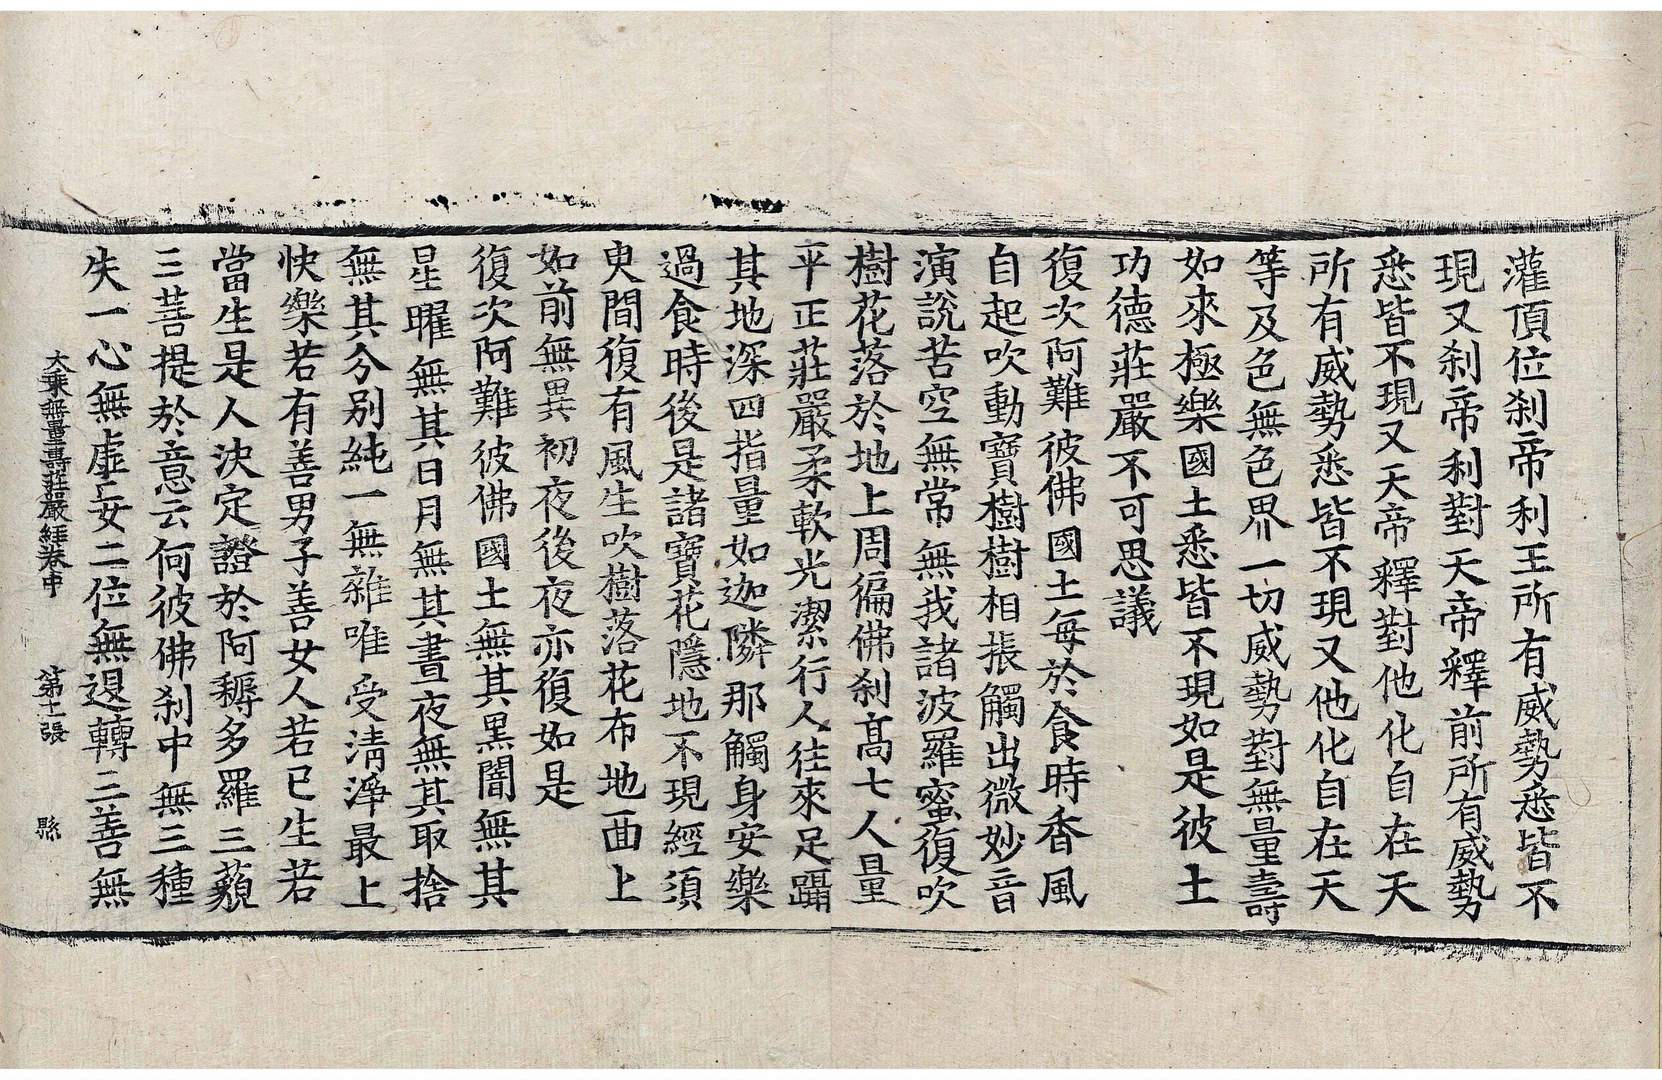 灌頂位刹帝利王所有威勢悉皆不
現又刹帝利對天帝釋前所有威勢
悉皆不現又天帝釋對他化自在天
所有威勢悉皆不現又他化自在天
等及色無色界一切威勢對無量壽
如來極樂國土悉皆不現如是彼土
功德莊嚴不可思議
復次阿難彼佛國土每於食時香風
自起吹動寶樹樹相振觸出微妙音
演說苦空無常無我諸波羅蜜復吹
樹花落於地上周徧佛刹髙七人量
平正莊嚴柔軟光潔行人往來足躡
其地深四指量如迦隣那觸身安樂
過食時後是諸寶花隱地不現經須
臾間復有風生吹樹落花布地面上
如前無異初夜後夜亦復如是
復次阿難彼佛國土無其黑闇無其
星曜無其日月無其晝夜無其取捨
無其分別純一無雜唯受清淨最上
快樂若有善男子善女人若已生若
當生是人決定證於阿耨多羅三藐
三菩提於意云何彼佛刹中無三種
失一心無虛妄二位無退轉三善無
大乘無量壽莊嚴經卷中 第十一張 縣